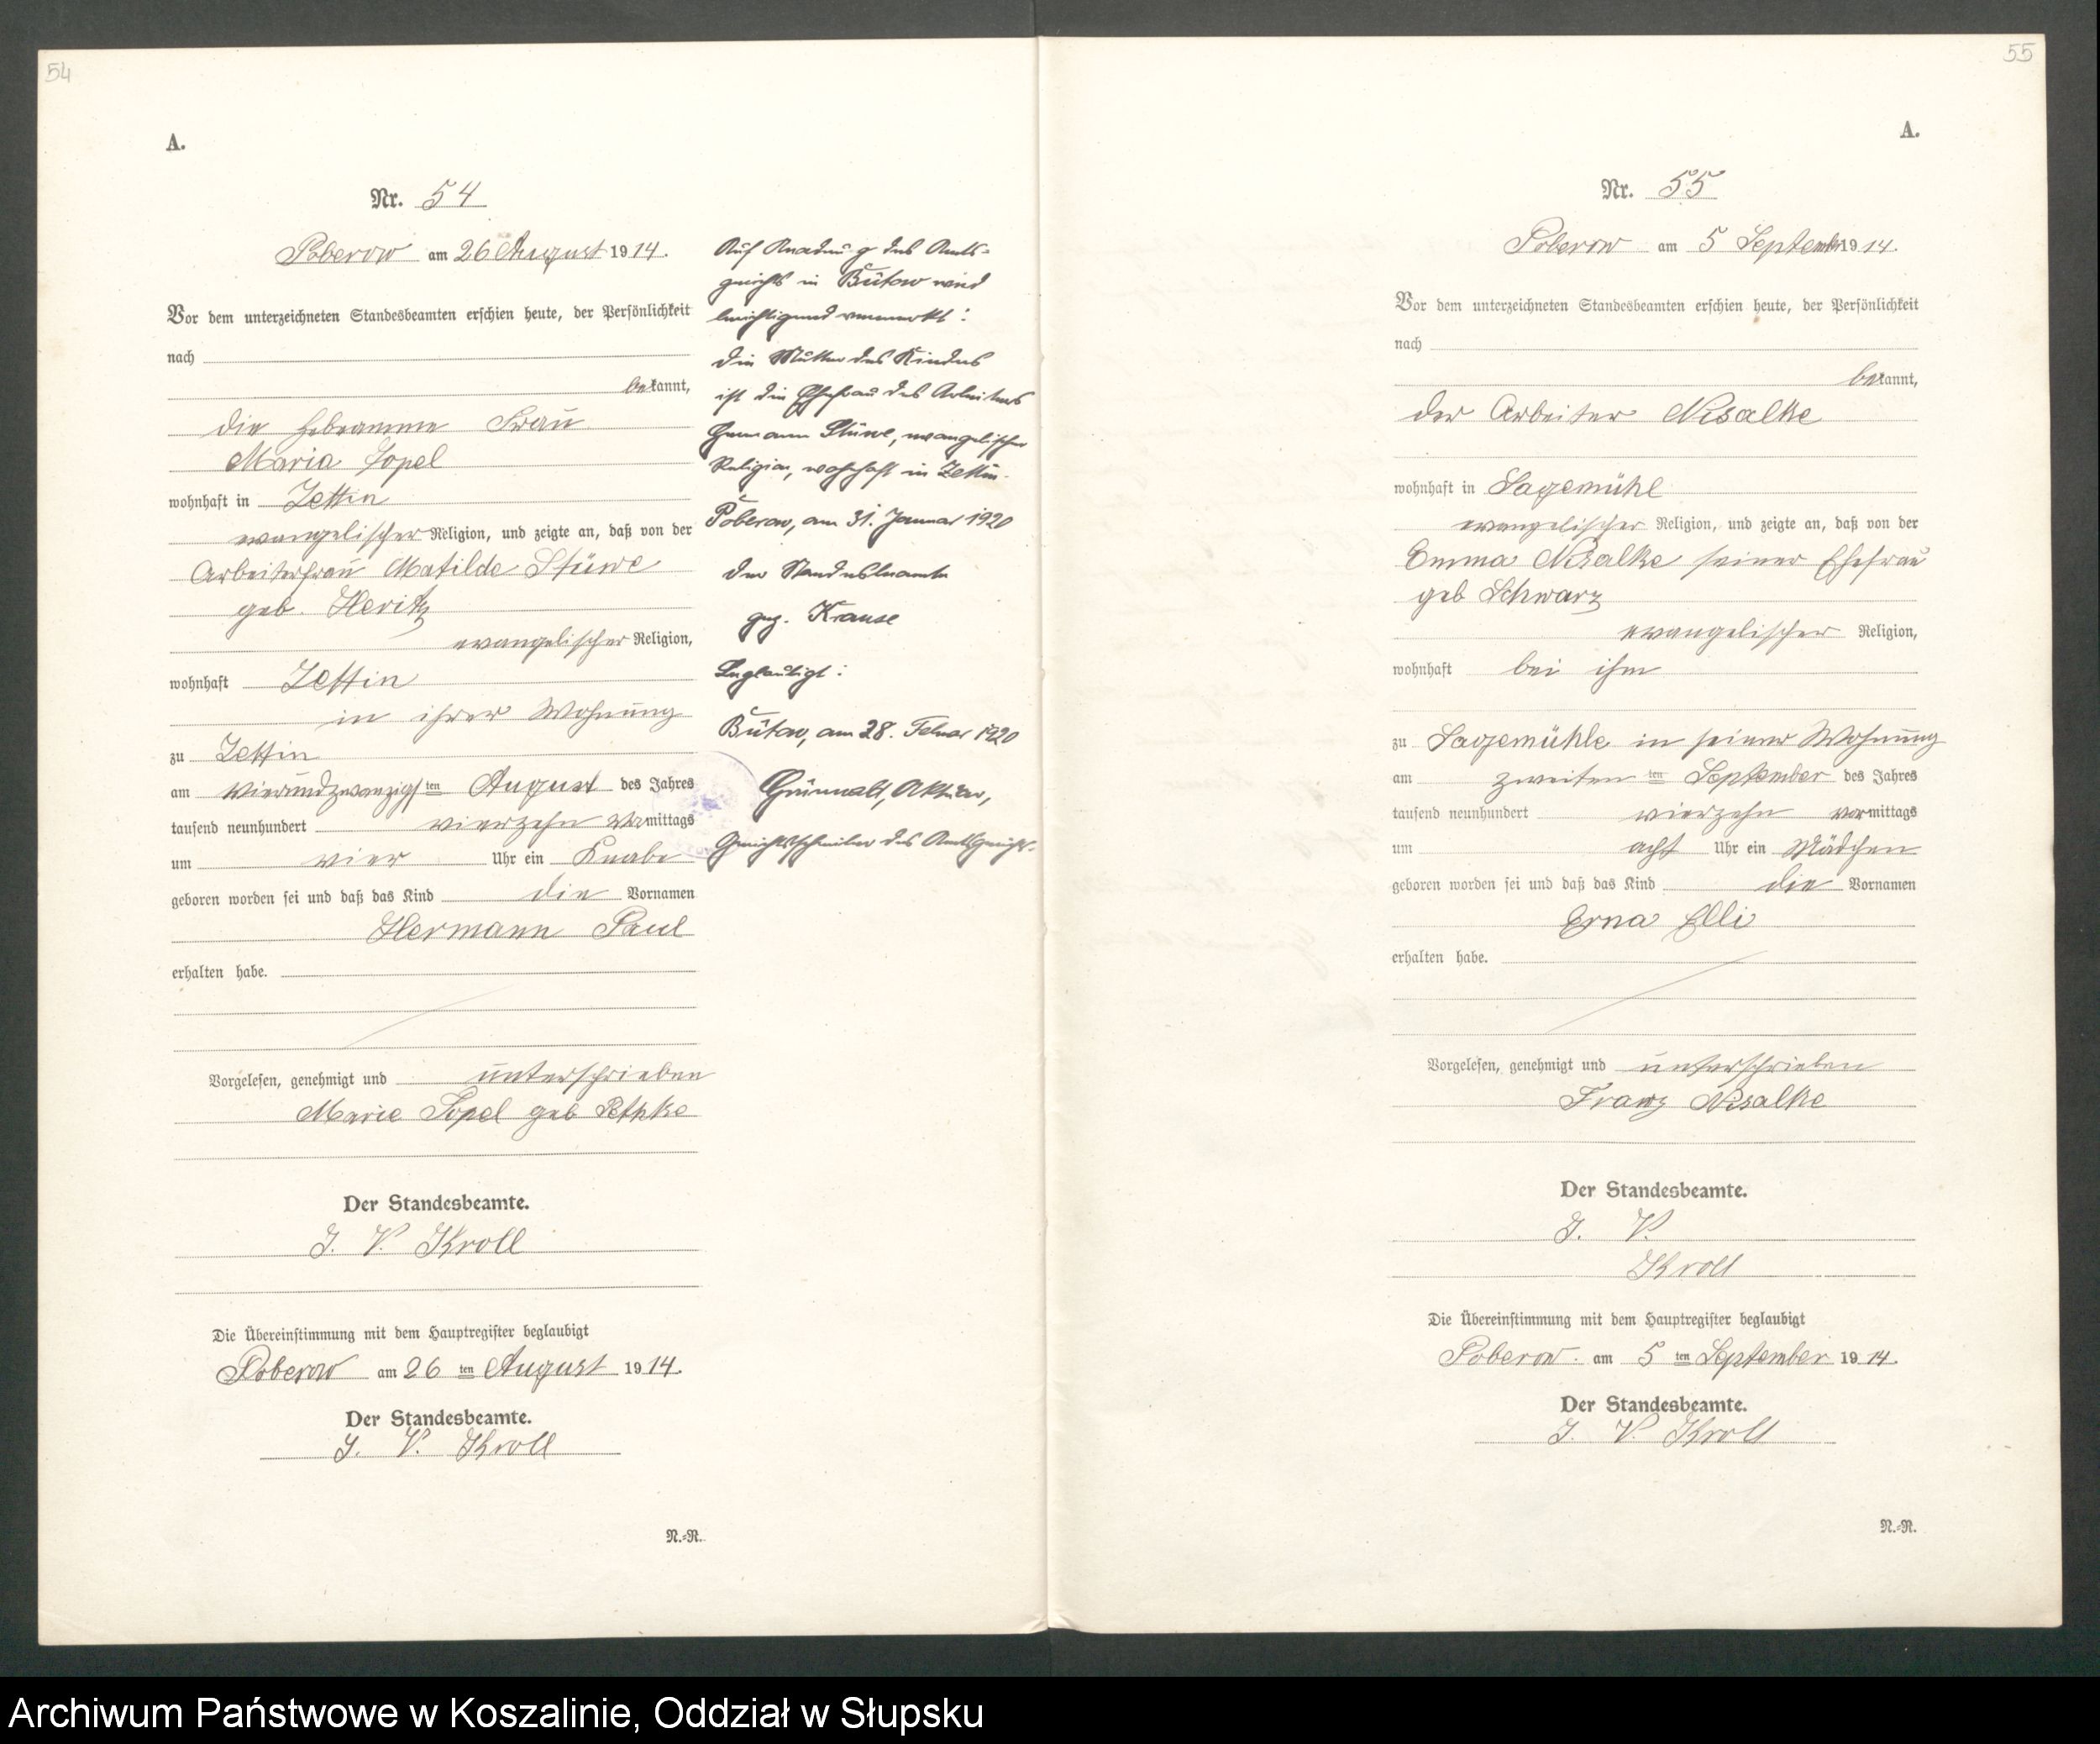 54
A.
Nr. 54
Poberow am 26 August 1914.
Vor dem unterzeichneten Standesbeamten erschien heute, der Persönlichkeit
nach
bekannt,
die Hebeamme Frau
Maria Sopel
wohnhaft in Zettin
evangelischer Religion, und zeigte an, daß von der
Arbeiterfrau Matilde Stüwe
geb. Heritz
evangelischer Religion,
wohnhaft Zettin
in ihrer Wohnung
zu Zettin
am vierundzwanzigsten August des Jahres
tausend neunhundert vierzehn vormittags
um vier Uhr ein Knabe
geboren worden sei und daß das Kind die Vornamen
Hermann Paul
erhalten habe.
Vorgelesen, genehmigt und unterschrieben
Marie Sopel geb Pethke
Der Standesbeamte.
J. V. Kroll
Die Übereinstimmung mit dem Hauptregister beglaubigt
Poberow am 26 ten August 1914.
Der Standesbeamte.
J. V. Kroll
N.=R.
Auf Anordnung des Amts-
gerichts in Bütow wird
berichtigend vermerkt:
die Mutter des Kindes
ist die Ehefrau des Arbeiters
Hermann Stüwe, evangelischer
Religion, wohnhaft in Zettin.
Poberow, am 31. Januar 1920
der Standesbeamte
gez. Krause
Beglaubigt:
Bütow, am 28. Februar 1920
Grünwalt, Aktuar,
Gerichtsschreiber des Amtsgerichts.
55
A.
Nr. 55
Poberow am 5 September 1914.
Vor dem unterzeichneten Standesbeamten erschien heute, der Persönlichkeit
nach
bekannt,
der Arbeiter Nisalke
wohnhaft in Sagemühl
evangelischer Religion, und zeigte an, daß von der
Emma Nisalke seiner Ehefrau
geb Schwarz
evangelischer Religion,
wohnhaft bei ihm
zu Sagemühle in seiner Wohnung
am zweiten ten September des Jahres
tausend neunhundert vierzehn vormittags
um acht Uhr ein Mädchen
geboren worden sei und daß das Kind die Vornamen
Erna Elli
erhalten habe.
Vorgelesen, genehmigt und unterschrieben
Franz Nisalke
Der Standesbeamte.
J. V.
Kroll
Die Übereinstimmung mit dem Hauptregister beglaubigt
Poberow. am 5 ten September 1914.
Der Standesbeamte.
J. V. Kroll
N.=R.
Archiwum Państwowe w Koszalinie, Oddział w Słupsku